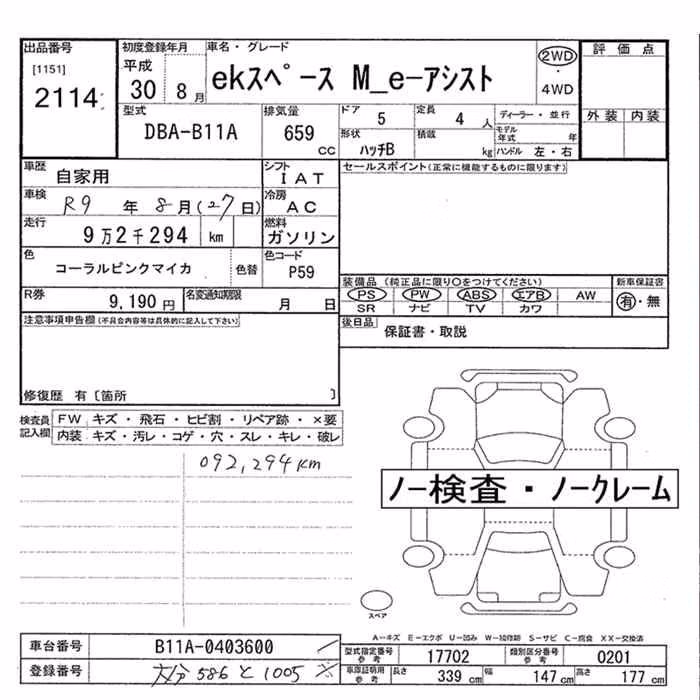 出品番号 初度登録年月 車名・グレード 2WD・4WD 評価点
[1151] 平成
2114 30 8月 ekスペース M_e-アシスト
型式 排気量 ドア 定員 ディーラー・並行 外装 内装
DBA-B11A 659 CC 5 4人 モデル年式 年
形状 積載
ハッチB kg ハンドル 左・右
車歴 シフト セールスポイント(正常に機能するものに限ります)
自家用 IAT
車検 冷房
R9年8月(27日) AC
走行 燃料
9万2千294 km ガソリン
色 色コード
コーラルピンクマイカ 色替 P59
装備品(純正品に限り○をつけてください) 新車保証書
PS PW ABS エアB AW 有・無
SR ナビ TV カワ
R券 名変通知期限
9,190円 月 日
後日品 保証書・取説
注意事項申告欄(不具合内容等は具体的に記入して下さい)
修復歴 有〔箇所 〕
検査員記入欄 FW キズ・飛石・ヒビ割・リペア跡・×要
内装 キズ・汚レ・コゲ・穴・スレ・キレ・破レ
092,294km
ノー検査・ノークレーム
スペア
A-キズ E-エクボ U-凹み W-補修跡 S-サビ C-腐食 XX-交換済
車台番号 B11A-0403600
型式指定番号 参考 17702 類別区分番号 参考 0201
登録番号 大分 586 と 1005 ※
車庫証明用 参考 長さ 339 cm 幅 147 cm 高さ 177 cm